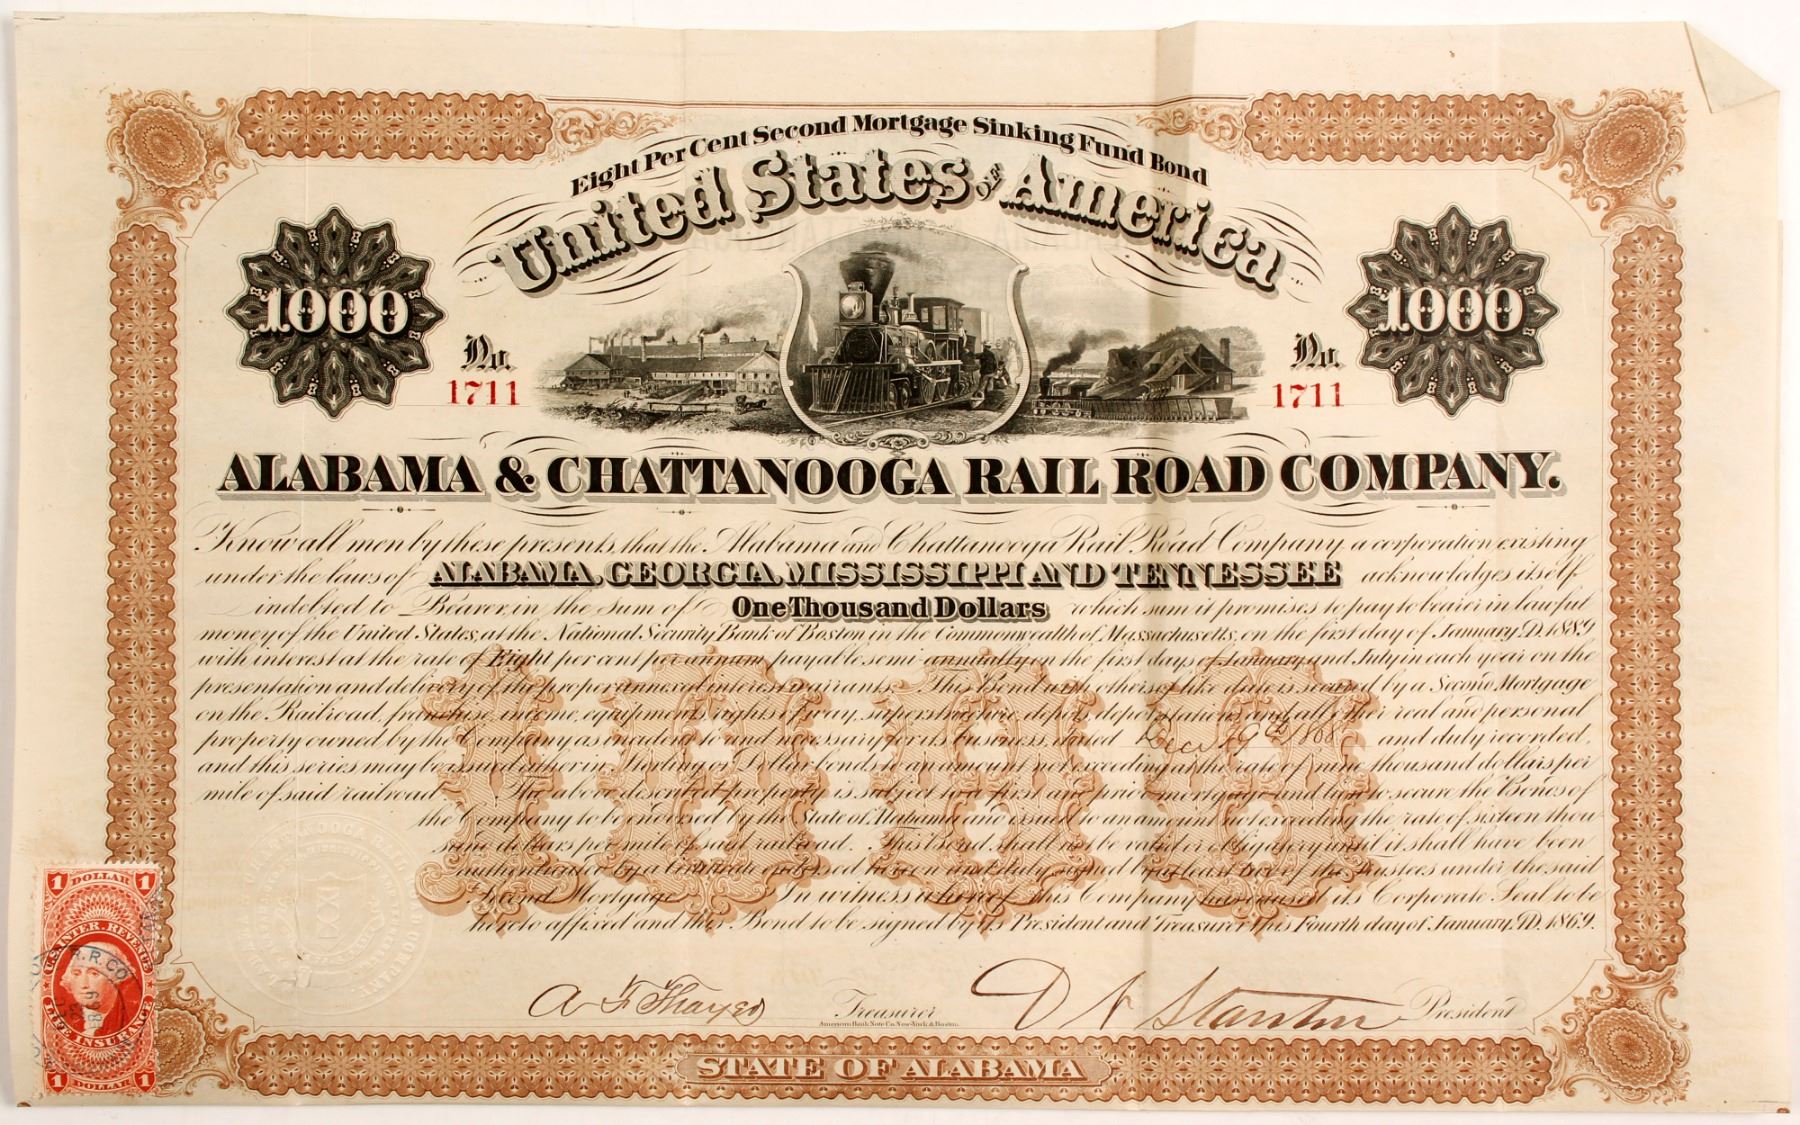 Eight Per Cent Second Mortgage Sinking Fund Bond
United States of America
1000
1000
No.
1711
No.
1711
ALABAMA & CHATTANOOGA RAIL ROAD COMPANY.
Know all men by these presents, that the Alabama and Chattanooga Rail Road Company a corporation existing
under the laws of ALABAMA, GEORGIA, MISSISSIPPI AND TENNESSEE acknowledges itself
indebted to Bearer, in the sum of One Thousand Dollars which sum it promises to pay to bearer in lawful
money of the United States, at the National Security Bank of Boston in the Commonwealth of Massachusetts, on the first day of January A.D. 1889
with interest at the rate of Eight per cent per annum payable semi-annually on the first days of January and July in each year on the
presentation and delivery of the proper annexed interest warrants. This Bond with others of like date is secured by a Second Mortgage
on the Railroad, franchise, income, equipments, rights of way, superstructure, depots, depot stations and all other real and personal
property owned by the Company as incident to and necessary for its business, dated Decr 19th 1868 and duly recorded,
and this series may be issued either in Sterling or Dollar bonds to an amount not exceeding at the rate of nine thousand dollars per
mile of said railroad. The above described property is subject to a first and prior mortgage and lien to secure the Bonds of
the Company to be endorsed by the State of Alabama and issued to an amount not exceeding the rate of sixteen thou
sand dollars per mile of said railroad. This bond shall not be valid or obligatory until it shall have been
authenticated by a Certificate endorsed hereon and duly signed by at least two of the Trustees under the said
Second Mortgage. In witness whereof this Company have caused its Corporate Seal to be
hereto affixed and this Bond to be signed by its President and Treasurer this Fourth day of January A.D. 1869.
1000
A F Thayer Treasurer
D N Stanton President
American Bank Note Co. New-York & Boston.
STATE OF ALABAMA
1 DOLLAR 1
U.S. INTER. REVENUE
R. R. CO.
1869
LIFE INSURANCE
1 DOLLAR 1